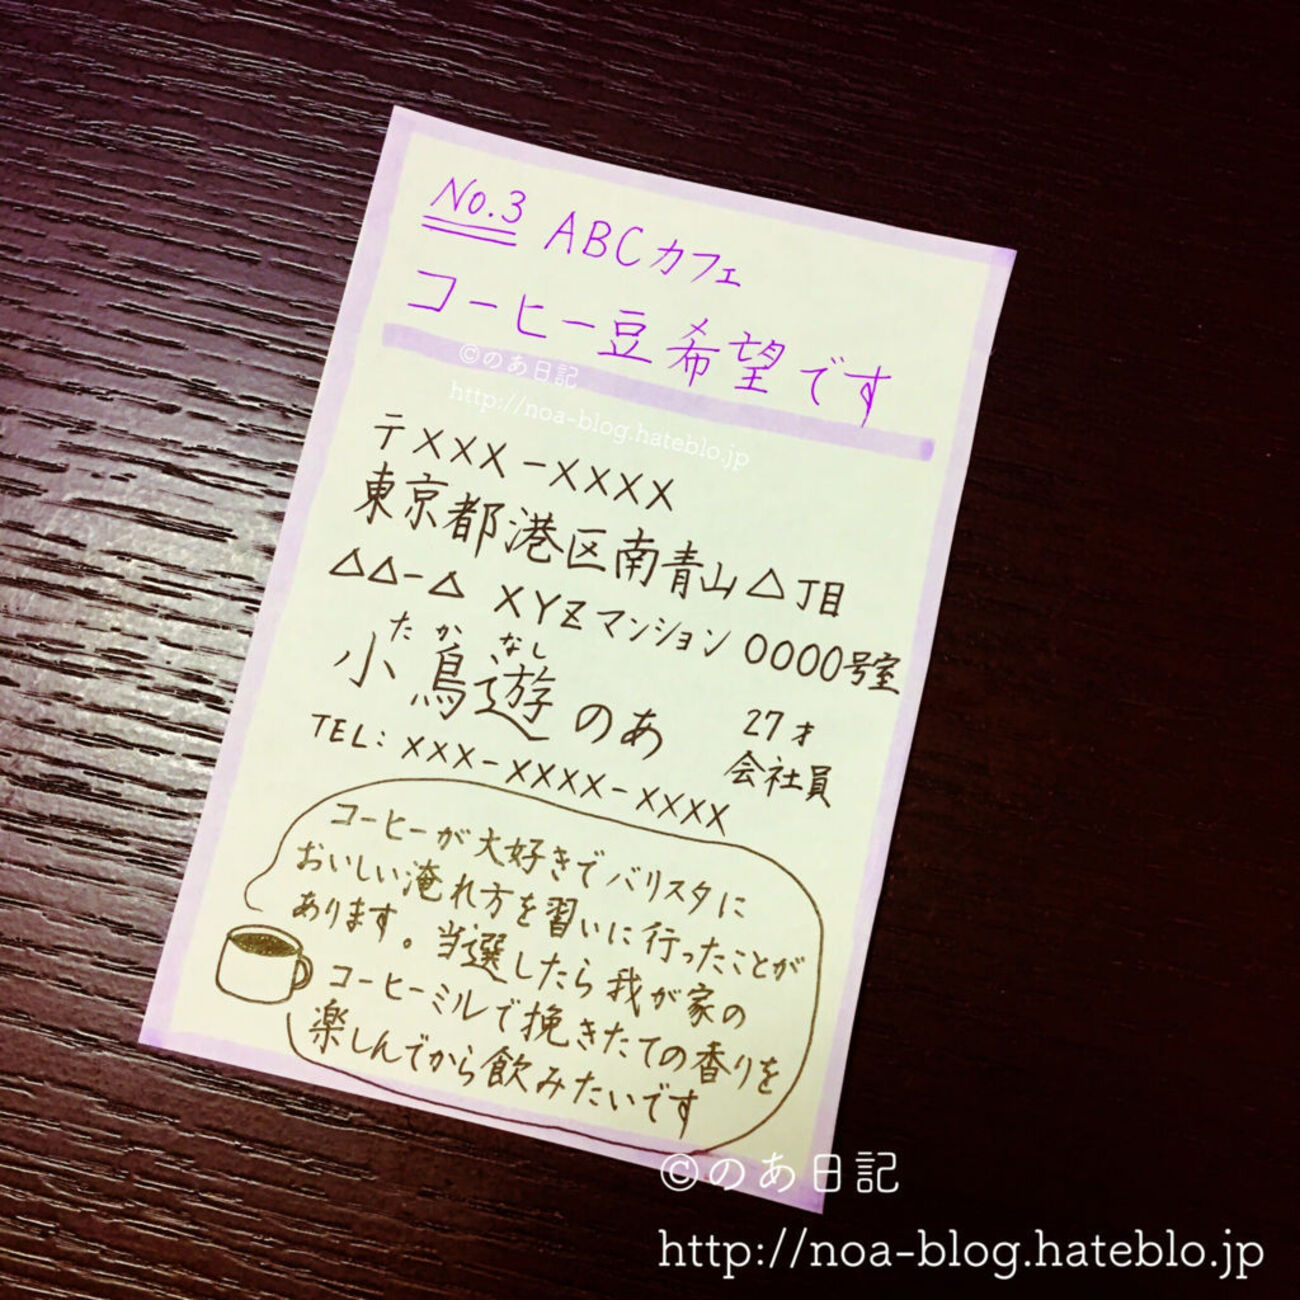 No.3 ABCカフェ
コーヒー豆希望です
©のあ日記
http://noa-blog.hateblo.jp
〒XXX-XXXX
東京都港区南青山△丁目
△△-△ XYZマンション 0000号室
たかなし
小鳥遊のあ 27才
会社員
TEL: XXX-XXXX-XXXX
コーヒーが大好きでバリスタに
おいしい淹れ方を習いに行ったことが
あります。当選したら我が家の
コーヒーミルで挽きたての香りを
楽しんでから飲みたいです
©のあ日記
http://noa-blog.hateblo.jp